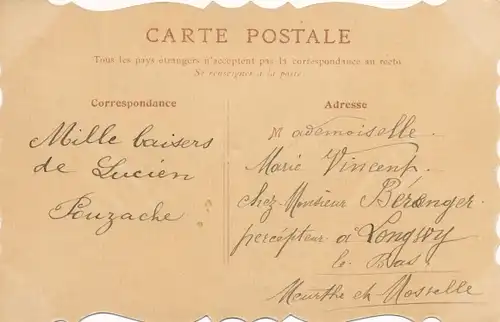 CARTE POSTALE
Tous les pays étrangers n'acceptent pas la correspondance au recto
Se renseigner à la poste
Correspondance
Mille baisers
de Lucien
Pouzache
Adresse
Mademoiselle
Marie Vincent
chez Monsieur Béranger
percepteur à Longwy
le Bas
Meurthe et Moselle